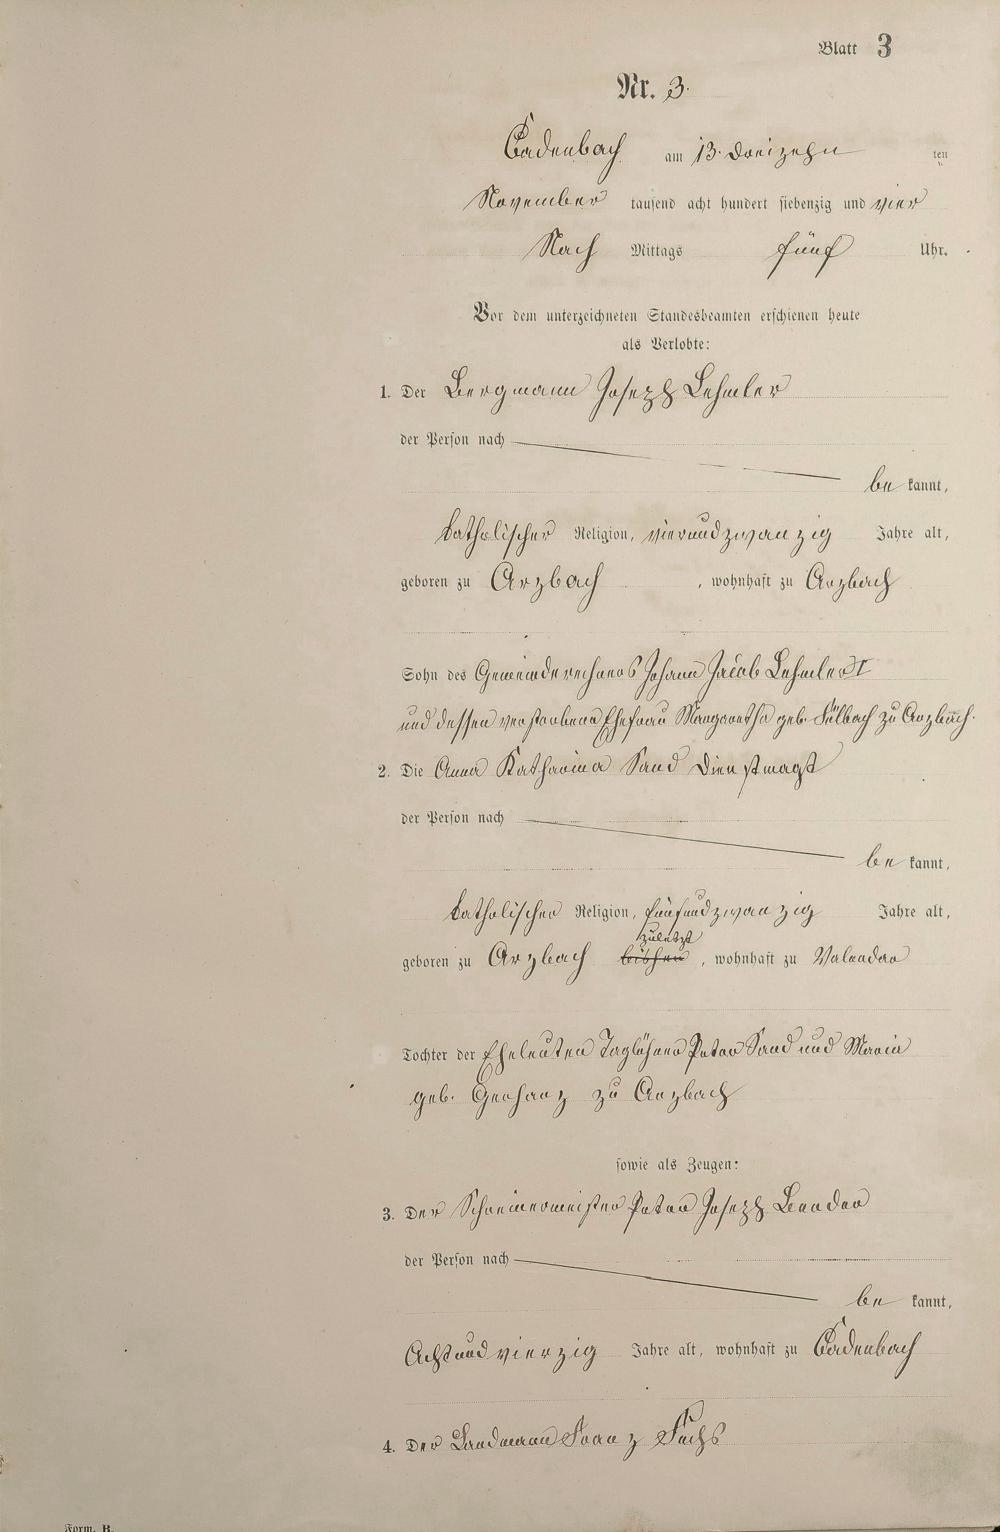 Blatt 3
Nr. 3.
Cadenbach am 13. dreizehn ten
November tausend acht hundert siebenzig und vier
Nach Mittags fünf Uhr.
Vor dem unterzeichneten Standesbeamten erschienen heute
als Verlobte:
1. Der Bergmann Joseph Lehmler
der Person nach
be kannt,
katholischer Religion, vierundzwanzig Jahre alt,
geboren zu Arzbach , wohnhaft zu Arzbach
Sohn des Gemeinderechners Johann Jacob Lehmler I
und dessen verstorbene Ehefrau Margaretha geb. Sülbach zu Arzbach.
2. Die Anna Katharina Sand Dienstmagd
der Person nach
be kannt,
katholischer Religion, fünfundzwanzig Jahre alt,
zuletzt
geboren zu Arzbach bisher , wohnhaft zu Valendar
Tochter der Eheleuten Taglöhner Peter Sand und Maria
geb. Gerharz zu Arzbach
sowie als Zeugen:
3. Der Schreinermeister Peter Joseph Bender
der Person nach
be kannt,
Achtundvierzig Jahre alt, wohnhaft zu Cadenbach
4. Der Landmann Franz Fuchs
Form. B.